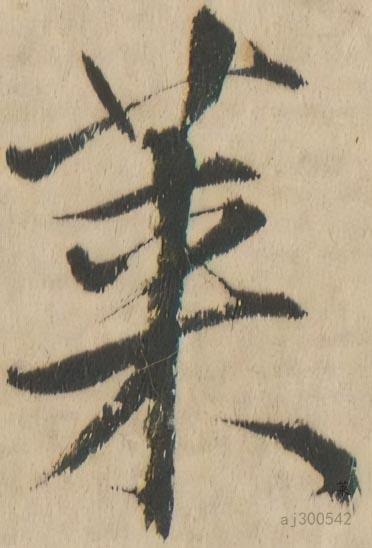 莱
莱
aj300542